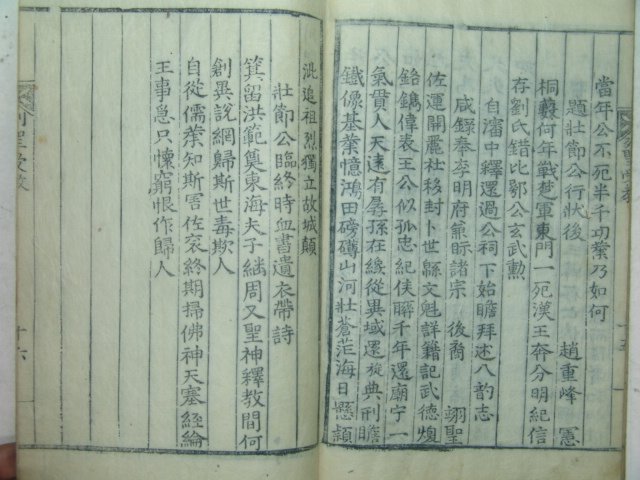 當年公不死半千功業乃如何
題壯節公行狀後　趙重峰憲
桐藪何年戰楚軍東門一死漢王奔分明紀信
存劉氏錯比鄂公玄武勳
自瀋中釋還過公祠下始瞻拜述八韵志
感錄奉李明府兼眎諸宗　後裔　翊聖
佐運開麗社移封卜世緜文魁詳籍記武德煥
鉻鐫偉表王公似孤忠紀侯聯千年還廟宇一
氣貫人天遠有孱孫在緣從異域還旋典刑瞻
鐵像基業憶鴻田磅礡山河壯蒼茫海日懸顙
十五
泚追祖烈獨立故城顛
壯節公臨終時血書遺衣帶詩
箕留洪範雋東海夫子繡周又聖神釋教間何
創異說網歸斯世毒欺人
自從儒業知斯害佐袞終期掃佛神天塞經綸
王事急只懷窮恨作歸人
十六